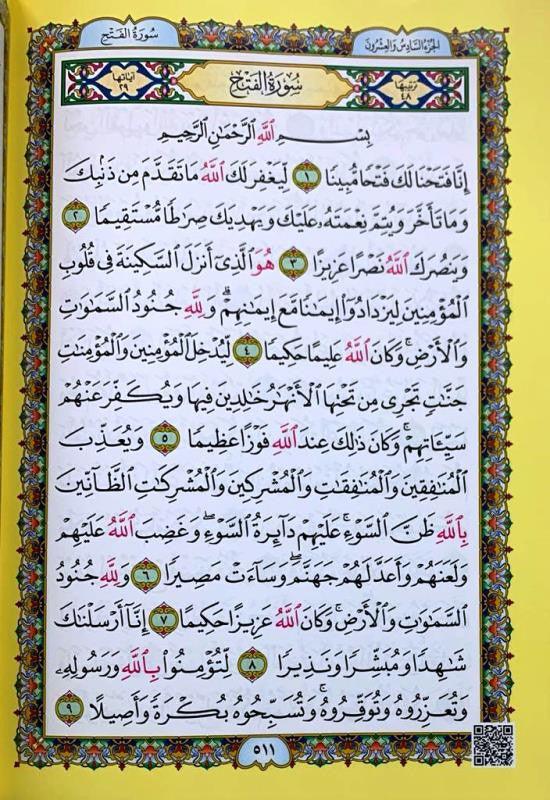 سُورَةُ الفَتْحِ
الجُزْءُ السَّادِسُ وَالعِشْرُونَ
آيَاتُهَا ٢٩
سُورَةُ الفَتْحِ
تَرْتِيبُهَا ٤٨
بِسْمِ اللَّهِ الرَّحْمَٰنِ الرَّحِيمِ
إِنَّا فَتَحْنَا لَكَ فَتْحًا مُّبِينًا ١ لِّيَغْفِرَ لَكَ اللَّهُ مَا تَقَدَّمَ مِن ذَنۢبِكَ
وَمَا تَأَخَّرَ وَيُتِمَّ نِعْمَتَهُۥ عَلَيْكَ وَيَهْدِيَكَ صِرَٰطًا مُّسْتَقِيمًا ٢
وَيَنصُرَكَ اللَّهُ نَصْرًا عَزِيزًا ٣ هُوَ الَّذِىٓ أَنزَلَ السَّكِينَةَ فِى قُلُوبِ
الْمُؤْمِنِينَ لِيَزْدَادُوٓا۟ إِيمَٰنًا مَّعَ إِيمَٰنِهِمْ ۗ وَلِلَّهِ جُنُودُ السَّمَٰوَٰتِ
وَالْأَرْضِ ۚ وَكَانَ اللَّهُ عَلِيمًا حَكِيمًا ٤ لِّيُدْخِلَ الْمُؤْمِنِينَ وَالْمُؤْمِنَٰتِ
جَنَّٰتٍ تَجْرِى مِن تَحْتِهَا الْأَنْهَٰرُ خَٰلِدِينَ فِيهَا وَيُكَفِّرَ عَنْهُمْ
سَيِّـَٔاتِهِمْ ۚ وَكَانَ ذَٰلِكَ عِندَ اللَّهِ فَوْزًا عَظِيمًا ٥ وَيُعَذِّبَ
الْمُنَٰفِقِينَ وَالْمُنَٰفِقَٰتِ وَالْمُشْرِكِينَ وَالْمُشْرِكَٰتِ الظَّآنِّينَ
بِاللَّهِ ظَنَّ السَّوْءِ ۚ عَلَيْهِمْ دَآئِرَةُ السَّوْءِ ۖ وَغَضِبَ اللَّهُ عَلَيْهِمْ
وَلَعَنَهُمْ وَأَعَدَّ لَهُمْ جَهَنَّمَ ۖ وَسَآءَتْ مَصِيرًا ٦ وَلِلَّهِ جُنُودُ
السَّمَٰوَٰتِ وَالْأَرْضِ ۚ وَكَانَ اللَّهُ عَزِيزًا حَكِيمًا ٧ إِنَّآ أَرْسَلْنَٰكَ
شَٰهِدًا وَمُبَشِّرًا وَنَذِيرًا ٨ لِّتُؤْمِنُوا۟ بِاللَّهِ وَرَسُولِهِۦ
وَتُعَزِّرُوهُ وَتُوَقِّرُوهُ ۚ وَتُسَبِّحُوهُ بُكْرَةً وَأَصِيلًا ٩
٥١١